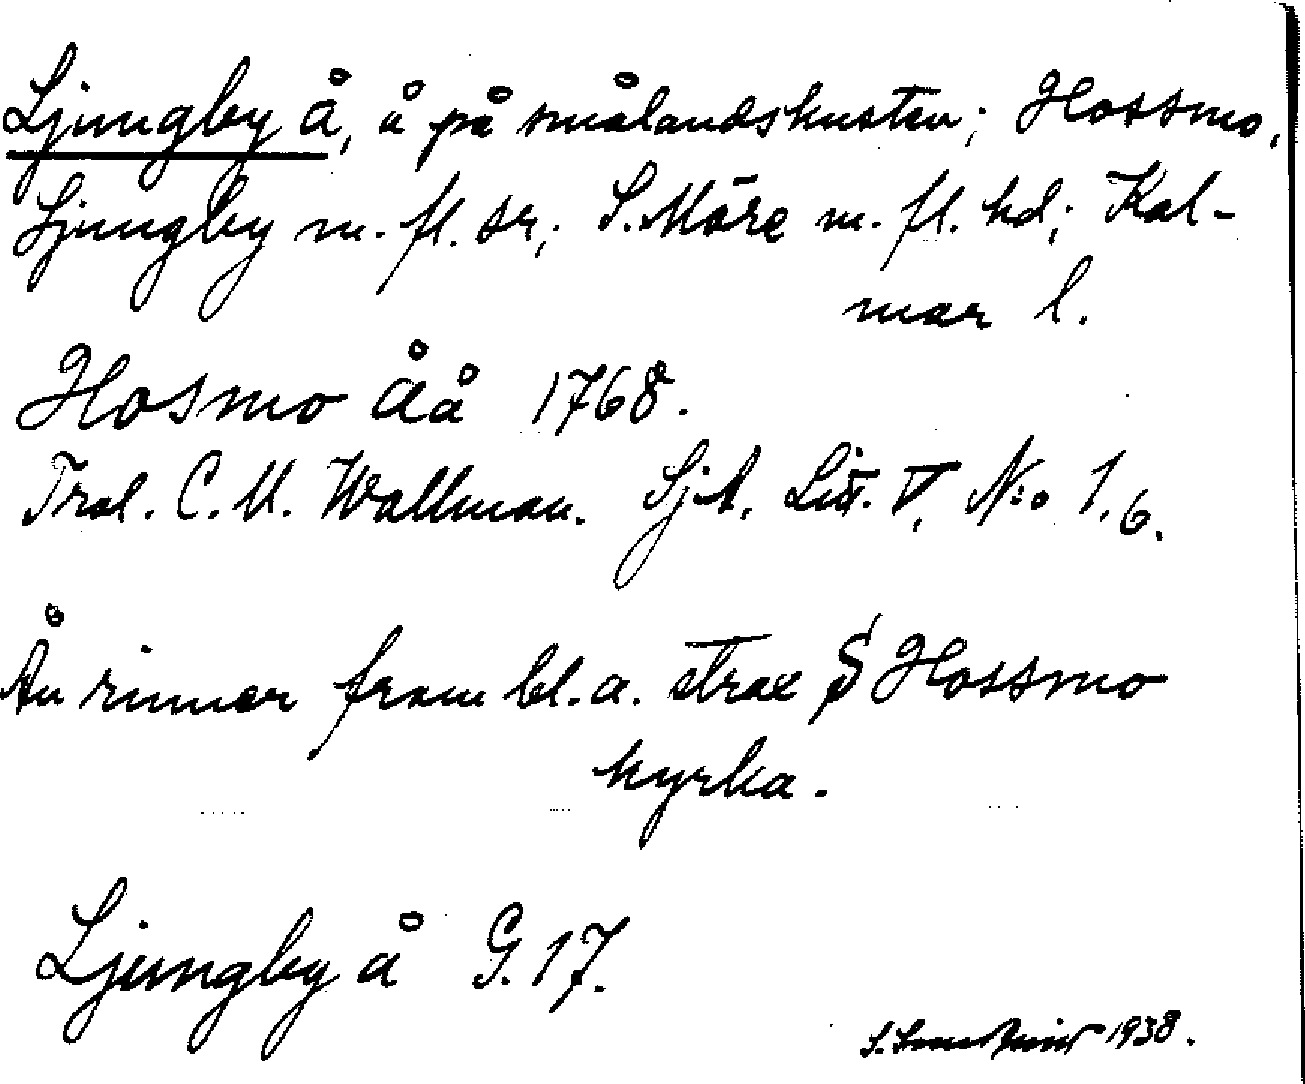 Ljungby å, å på smålandskusten; Hossmo,
Ljungby m. fl. sr; S. Möre m. fl. hd; Kal-
mar l.
Hosmo Åå 1768.
Trol. C. U. Wallman. Sjk. Litt. V. N:o 1.6.
Ån rinner fram bl. a. strax S Hossmo
kyrka.
Ljungby å G. 17.
1938.